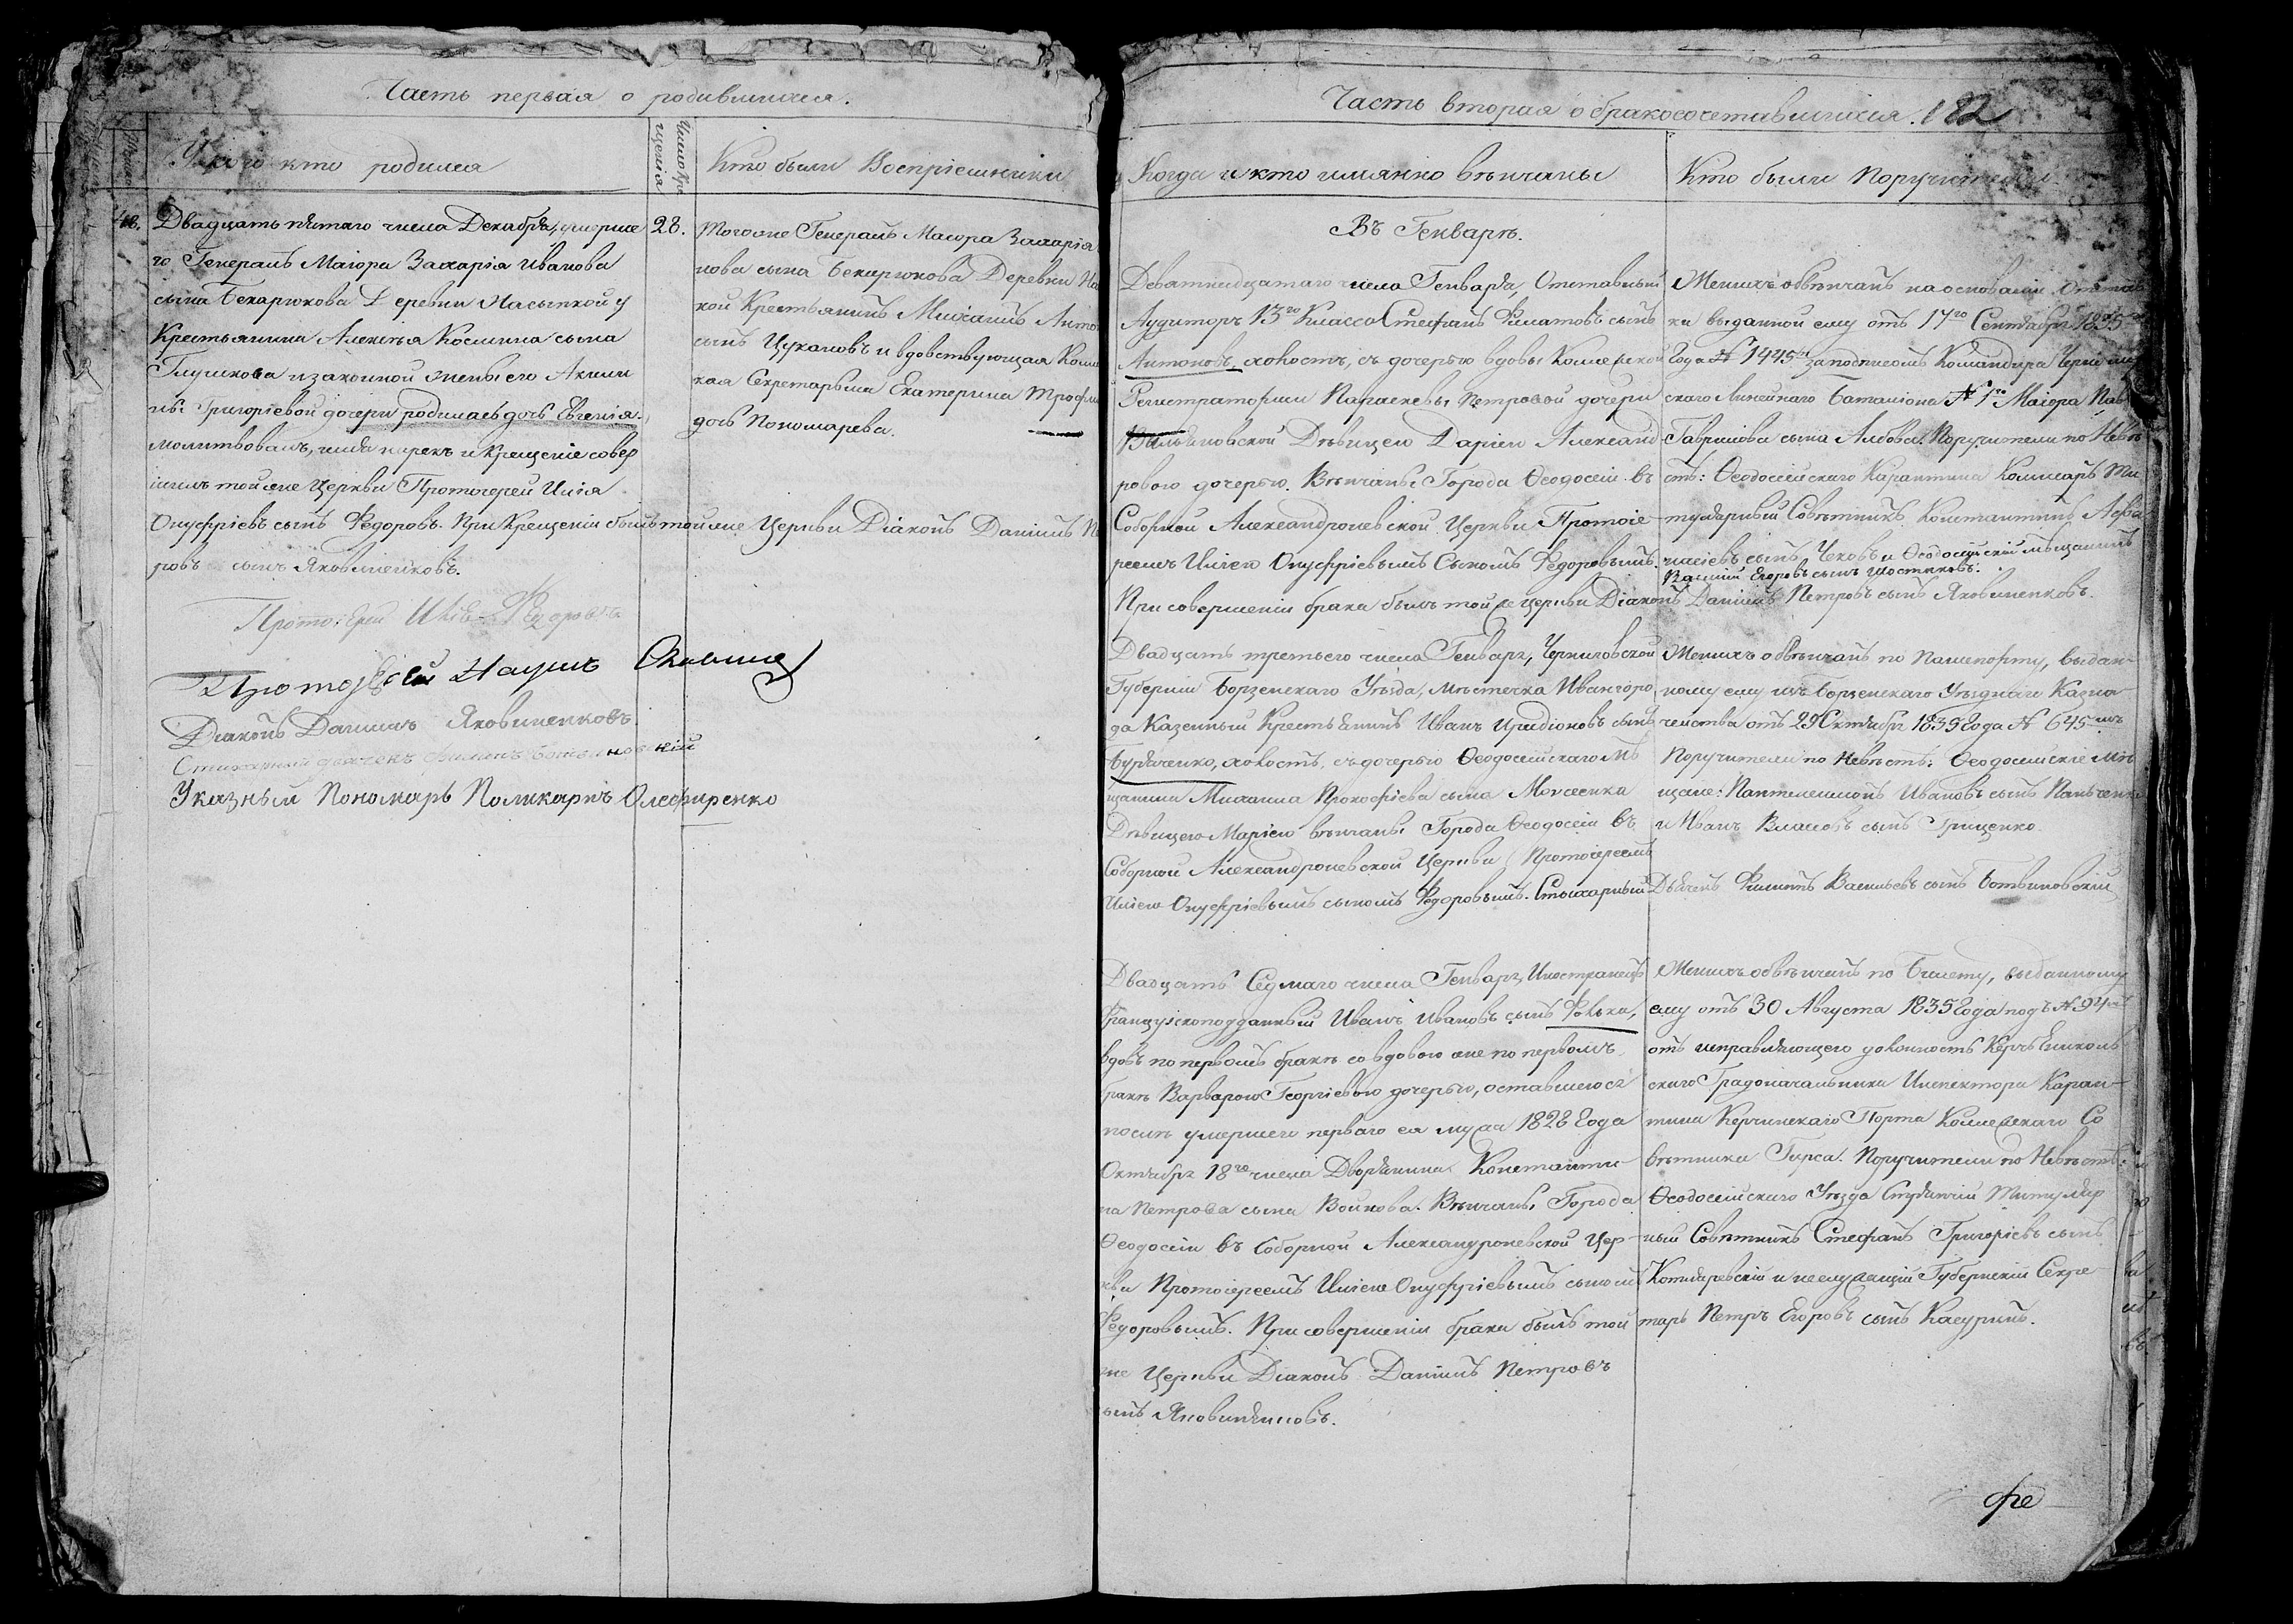 Часть первая о родившихся.
У кого кто родился
Число Кре
щенія
Кто были Воспріемники
48.
Двадцать пятаго числа Декабря, умерше
го Генералъ Маіора Захарія Иванова
сына Бекарюкова Деревни Насыпкой у
Крестьянина Алексѣя Космина сына
Глушкова и законной жены его Акили
ны Григоріевой дочери родилась дочь Евгенія.
молитвовалъ, имя нарекъ и крещеніе совер
шилъ той же Церкви Протоіерей Илія
Онуфріевъ сынъ Федоровъ. При Крещеніи былъ той же Церкви Діаконъ Даніилъ
ровъ сынъ Яковлиенковъ.
28.
Того же Генералъ Маіора Захарія
нова сына Бекарюкова Деревни На
кой Крестьянинъ Михаилъ Анто
сынъ Цукановъ и вдовствующая Колле
кая Секретарьша Екатерина Трофи
дочь Пономарева.
Протоіерей Илія Федоровъ
Протоіерей Наумъ
Діаконъ Даніилъ Яковлиенковъ.
Стихарный дьячекъ Филипъ Ботвиновскій
Указный Пономарь Поликарпъ Олефиренко
Часть вторая о бракосочетавшихся. 182
Когда и кто имянно вѣнчаны
Кто были Поручители.
Въ Генварѣ.
Девятнадцатаго числа Генваря, Отставный
Аудиторъ 13го Класса Стефанъ Филатовъ сынъ
Антоновъ, холостъ, съ дочерью вдовы Коллежской
Регистраторши Параскевы Петровой дочери
Дѣвицею Даріею Александ
ровою дочерью. Вѣнчаны Города Ѳеодосіи въ
Соборной Александроневской Церкви Протоіе
реемъ Иліею Онуфріевымъ Сыномъ Федоровымъ.
При совершеніи брака былъ той же церкви Діаконъ Даніилъ Петровъ сынъ Яковлиенковъ.
Женихъ обвѣнчанъ на основаніи Отстав
ки выданной ему отъ 17го Сентября 1835
Года № 1445 за подписомъ Командира Черномор
скаго Линейнаго Баталіона № 1го Маіора Пав
Гаврилова сына Албова. Поручители по Невѣ
стѣ: Ѳеодосійскаго Карантина Комисаръ Ти
тулярный Совѣтникъ Константинъ Афа
насіевъ сынъ Чеховъ и Ѳеодосійскій мѣщанинъ
Василій Егоровъ сынъ Шостаковъ.
Двадцать третьего числа Генваря, Черниговской
Губерніи Борзенскаго Уѣзда, мѣстечка Ивангоро
да Казенный Крестьянинъ Иванъ Иридіоновъ сынъ
Буряченко, холостъ, съ дочерью Ѳеодосійскаго мѣ
щанина Михаила Прокофіева сына Моисеенка
Дѣвицею Маріею вѣнчаны Города Ѳеодосіи въ
Соборной Александроневской Церкви Протоіереемъ
Иліею Онуфріевымъ сыномъ Федоровымъ. Стихарный Дьячекъ Филипъ Васильевъ сынъ Ботвиновскій
Женихъ обвѣнчанъ по Пашпорту, выдан
ному ему изъ Борзенскаго Уѣзднаго Казна
чейства отъ 29 Октября 1835 Года № 645
Поручители по Невѣстѣ: Ѳеодосійскіе мѣ
щане: Пантелеимонъ Ивановъ сынъ Панченко
и Иванъ Власовъ сынъ Гриценко.
Двадцать Седмаго числа Генваря, Иностранецъ
Французскоподданный Иванъ Ивановъ сынъ Фолька,
вдовъ по первомъ бракѣ со вдовою же по первомъ
бракѣ Варварою Георгіевою дочерью, оставшеюся
послѣ умершаго перваго ея мужа 1828 Года
Октября 18го числа Дворянина Константи
на Петрова сына Войнова. Вѣнчаны Города
Ѳеодосіи въ Соборной Александроневской Цер
кви Протоіереемъ Иліею Онуфріевымъ сыномъ
Федоровымъ. При совершеніи брака былъ той
же Церкви Діаконъ Даніилъ Петровъ
сынъ Яковлиенковъ.
Женихъ обвѣнчанъ по Билету, выданному
ему отъ 30 Августа 1835 Года подъ № 94
отъ исправляющего должность Керчь Еникол
скаго Градоначальника Инспектора Каран
тина Керчинскаго Порта Коллежскаго Со
вѣтника Гирса. Поручители по Невѣстѣ:
Ѳеодосійскаго Уѣзда Стряпчій Титуляр
ный Совѣтникъ Стефанъ Григоріевъ сынъ
Котляревскій и неслужащій Губернскій Секре
тарь Петръ Егоровъ сынъ Касуринъ.
фе